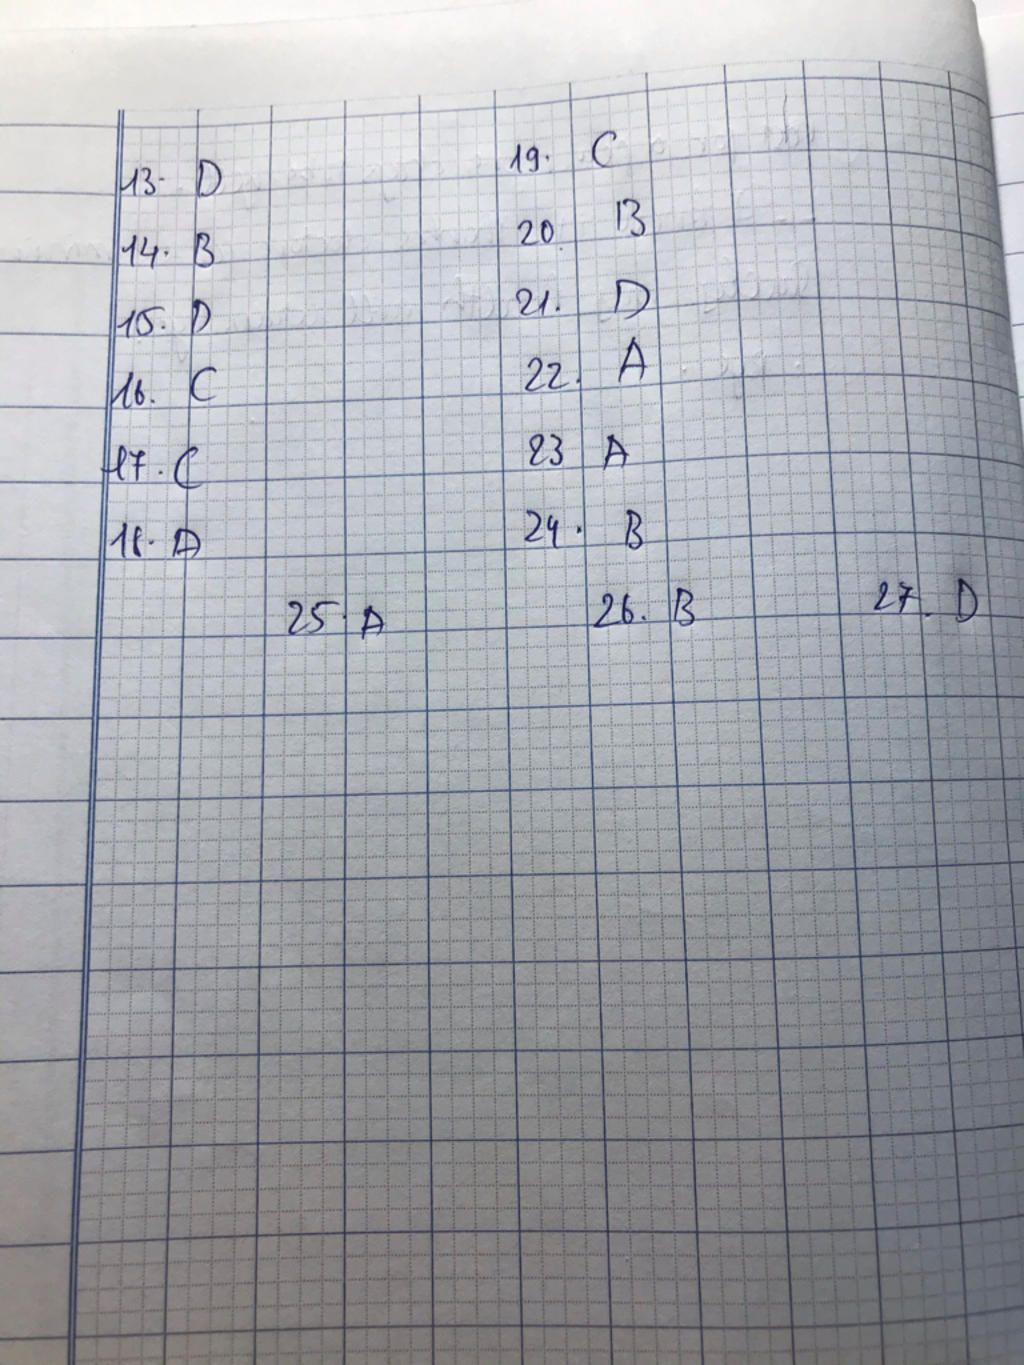 13. D
14. B
15. D
16. C
17. C
18. A
19. C
20. B
21. D
22. A
23 A
24. B
25. A
26. B
27. D